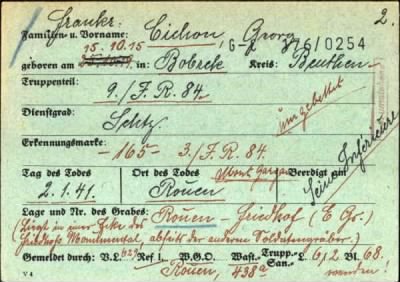 2.
Familien- u. Vorname: Cichon, Georg
15.10.15 G-Z 376/0254
geboren am in: Bobrek Kreis: Beuthen
Truppenteil: 9./F.R. 84.
Dienstgrad: Schtz. umgebettet
Erkennungsmarke: -165- 3./F.R. 84.
Seine Inférieure
Tag des Todes Ort des Todes Beerdigt am
2.1.41. Rouen
Lage und Nr. des Grabes: Rouen - Friedhof (E. Gr.)
(Liegt in einer Ecke des
Friedhofs Monumental, abseits der anderen Soldatengräber.)
Gemeldet durch: V.L. 629 Ref i. W.G.O. Wast. Trupp. L 612 Bl 68.
San.
Rouen, 438a wenden!
V 4